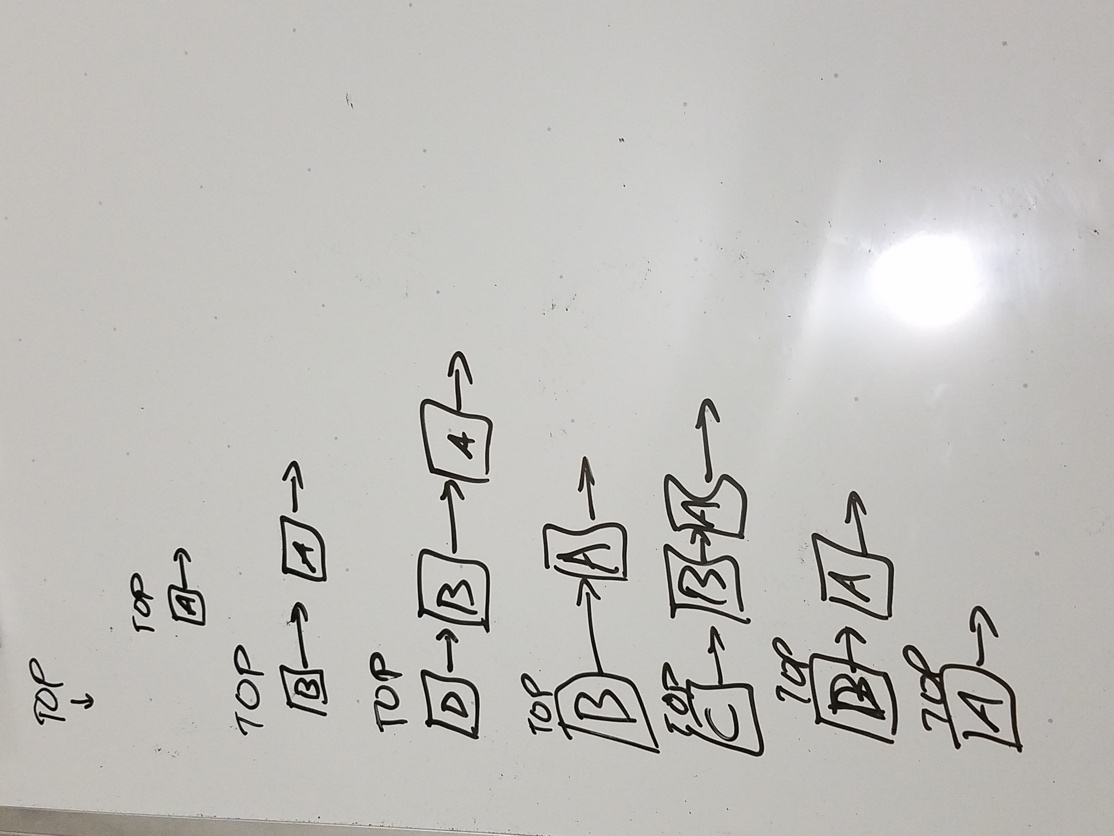 TOP
TOP
A
TOP
B → A →
TOP
D → B → A →
TOP
B → A →
TOP
C → B → A →
TOP
B → A →
TOP
A →